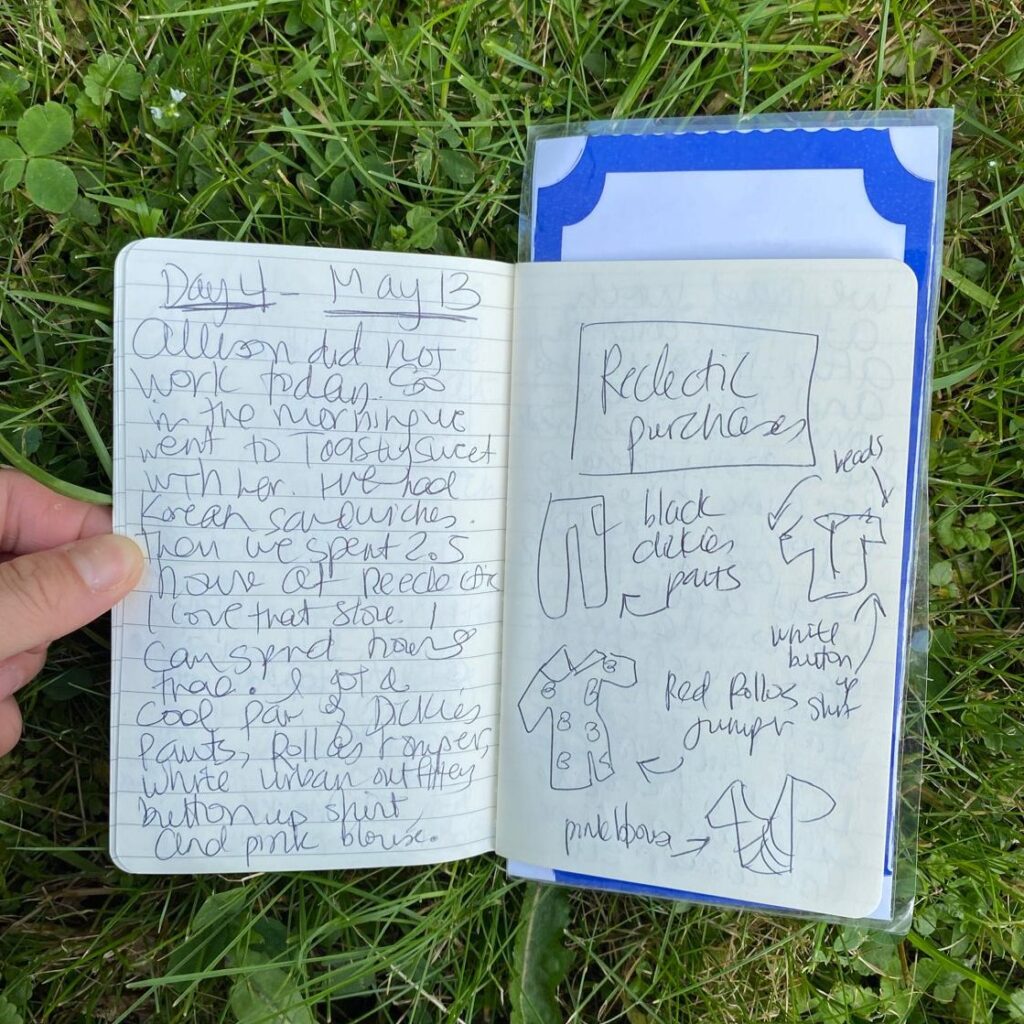 Day 4 - May 13
Allison did not
work today. So
in the morning we
went to Toastysweet
with her. We had
Korean sandwiches.
Then we spent 2.5
hours at Reeclectic
I love that store. I
can spend hours
there. I got a
cool pair of Dickies
pants, Rollas romper,
white urban outfitters
button up shirt
And pink blouse.
Reclectic
purchases
beads
black
dickies
pants
white
button
up
shirt
Red Rollas
jumper
B
B B
B B
B B
pink blouse